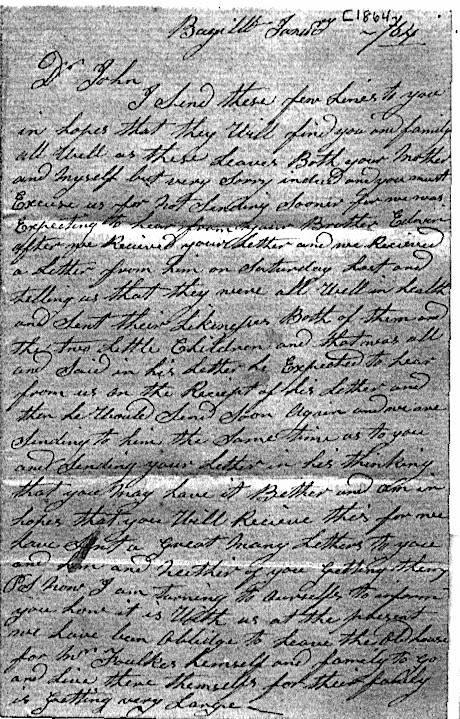 C1864
Bagillt Janry /64
Dr John
I Send these few Lines to you
in hopes that they Will find you and family
all Well as these Leaves Both your Mother
and Myself but very Sorry indeed and you must
Excuse us for Not Sending Sooner for we was
Expecting to hear from your Brother
after we Recieved your Letter and we Recieved
a Letter from him on Saturday Last and
telling us that they were all Well in health
and Sent their Likenesses Both of them and
the two Little Children and that was all
and Said in his Letter he Expected to hear
from us on the Reciept of his Letter and
then he Would Send Soon Again and we are
Sending to him the Same time as to you
and Sending your Letter in his thinking
that you May have it Better and Am in
hopes that you Will Recieve this for we
have Sent a Great Many Letters to you
and and Neither of you Getting them
Now I am turning to Ourselfs to inform
you how it is With us at the present
we have been Obblidge to Leave the Old house
for Mr Foulkes himself and family to go
and Live there themselfs for their family
is Getting very Large